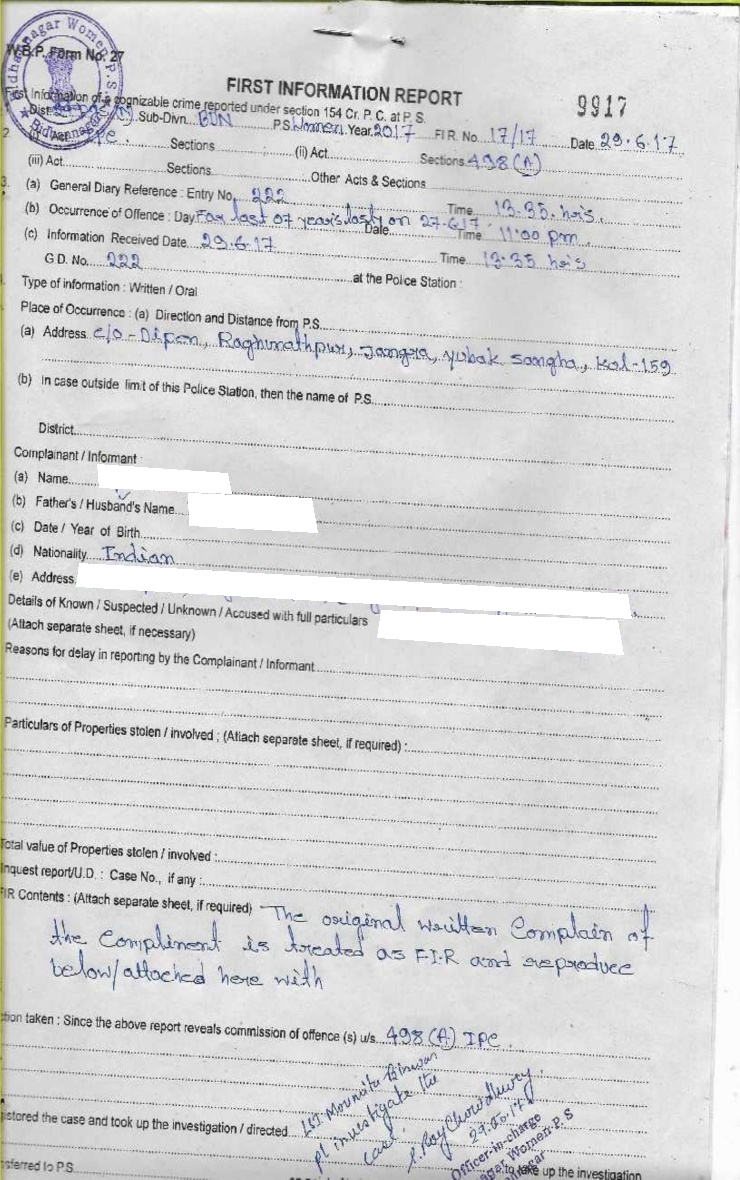 Bidhannagar Women P.S.
★ Bidhannagar
W.B.P. Form No. 27
FIRST INFORMATION REPORT
9917
First Information of a cognizable crime reported under section 154 Cr. P. C. at P. S.
Dist. Sub-Divn. BDN P.S. Women Year 2017 FIR. No. 17/17 Date 29.6.17
2. (i) IPC. Sections (ii) Act Sections 498(A)
(iii) Act Sections Other Acts & Sections
3. (a) General Diary Reference : Entry No. 222 Time 13.35. hrs.
(b) Occurrence of Offence : Day For last 07 years lastly on 27.6.17 Date Time 11:00 pm
(c) Information Received Date 29.6.17
G.D. No. 222 at the Police Station : Time 13.35 hrs
Type of information : Written / Oral
Place of Occurrence : (a) Direction and Distance from P.S.
(a) Address c/o - Dipon, Raghunathpur, Jangra, yubak Sangha, Kol-159
(b) In case outside limit of this Police Station, then the name of P.S.
District
Complainant / Informant :
(a) Name
(b) Father's / Husband's Name
(c) Date / Year of Birth
(d) Nationality Indian
(e) Address
Details of Known / Suspected / Unknown / Accused with full particulars
(Attach separate sheet, if necessary)
Reasons for delay in reporting by the Complainant / Informant
Particulars of Properties stolen / involved ; (Attach separate sheet, if required) :
Total value of Properties stolen / involved :
Inquest report/U.D. : Case No., if any :
FIR Contents : (Attach separate sheet, if required) The original written Complain of
the Compliment is treated as F.I.R and reproduce
below/attached here with
tion taken : Since the above report reveals commission of offence (s) u/s. 498(A) IPC.
LSI Moumita Biswas
pl investigate the
case.
S. Roy Chowdhury
Officer-in-charge
nagar Women P.S
stored the case and took up the investigation / directed
to take up the investigation
sferred to P.S